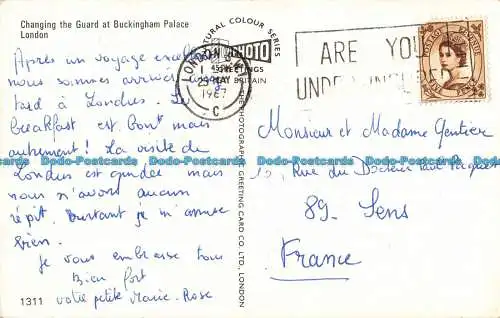 Changing the Guard at Buckingham Palace
London
Après un voyage excellent
nous sommes arrivés
tard à Londres. Le
breakfast est bon mais
autrement! La visite de
Londres est guidée mais
nous n'avons aucun
répit. Pourtant je m'amuse
bien.
Je vous embrasse tous
bien fort
votre petite Marie-Rose
1311
NATURAL COLOUR SERIES
PHOTO
GREETINGS
BRITAIN
THE PHOTOGRAPHIC GREETING CARD CO. LTD., LONDON
LONDON
MAY
196
C
ARE YOU
UNDER INSURED
POSTAGE REVENUE
Monsieur et Madame Gentier
Rue du Docteur
89. Sens
France
Dodo-Postcards Dodo-Postcards Dodo-Postcards Dodo-Postcards